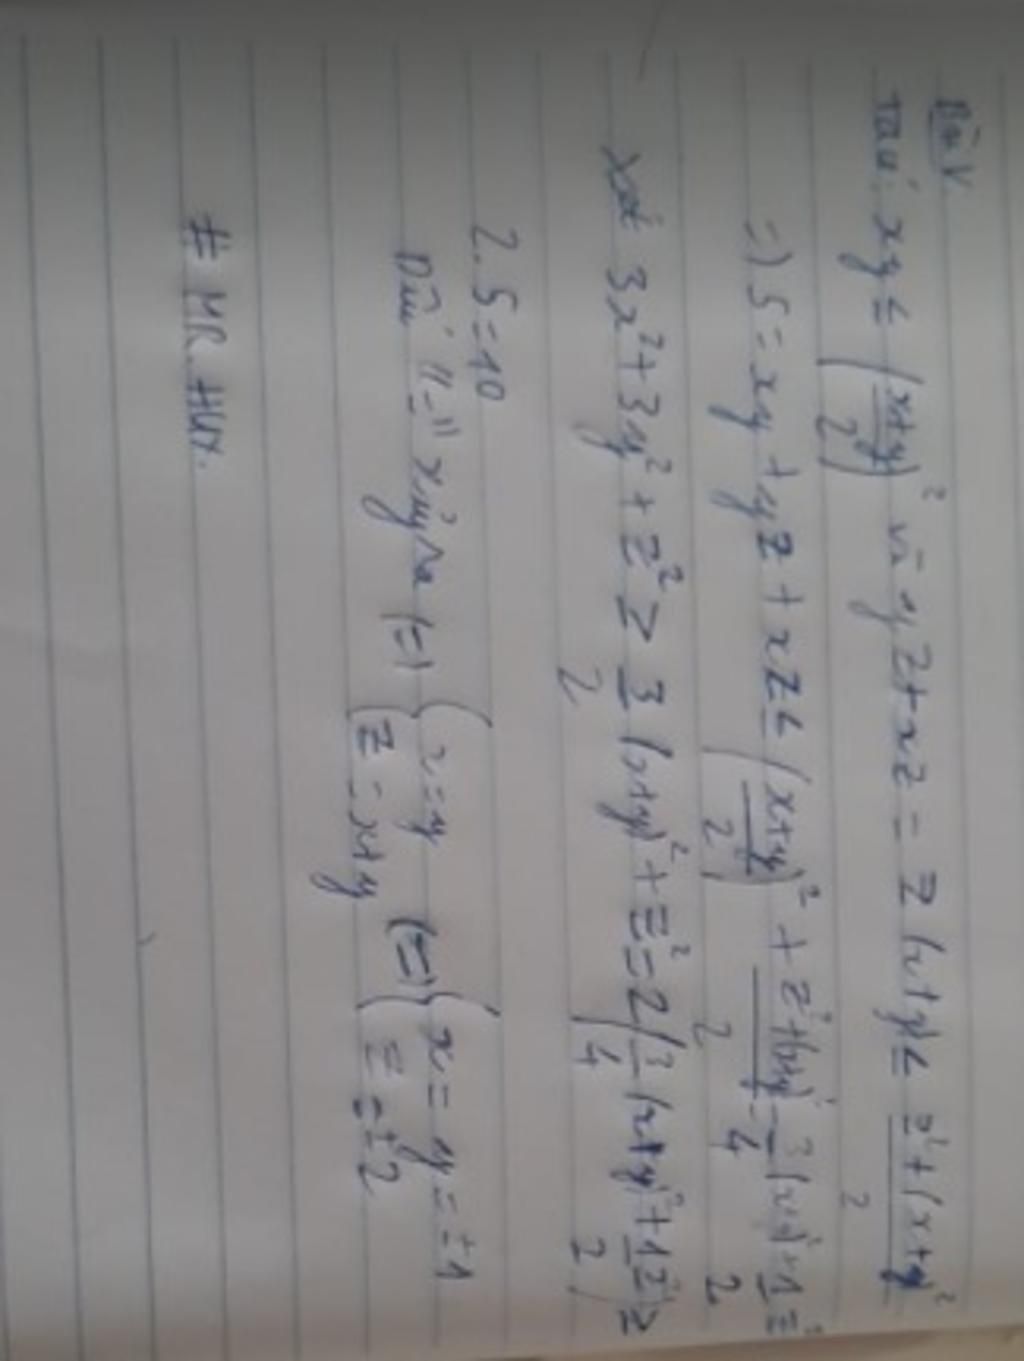 Bài V
Ta có: xy ≤ ((x+y)/2)² và yz + xz = z(x+y) ≤ (z²+(x+y)²)/2
=) 5 = xy + yz + xz ≤ ((x+y)/2)² + (z²+(x+y)²)/2 = 3/4(x+y)² + 1/2 z²
Xét 3x² + 3y² + z² ≥ 3/2 (x+y)² + z² = 2(3/4 (x+y)² + 1/2 z²) ≥
2.5 = 10
Dấu "=" xảy ra (=) { x = y (=) { x = y = ±1
{ z = x+y { z = ±2
# MR. HUY.